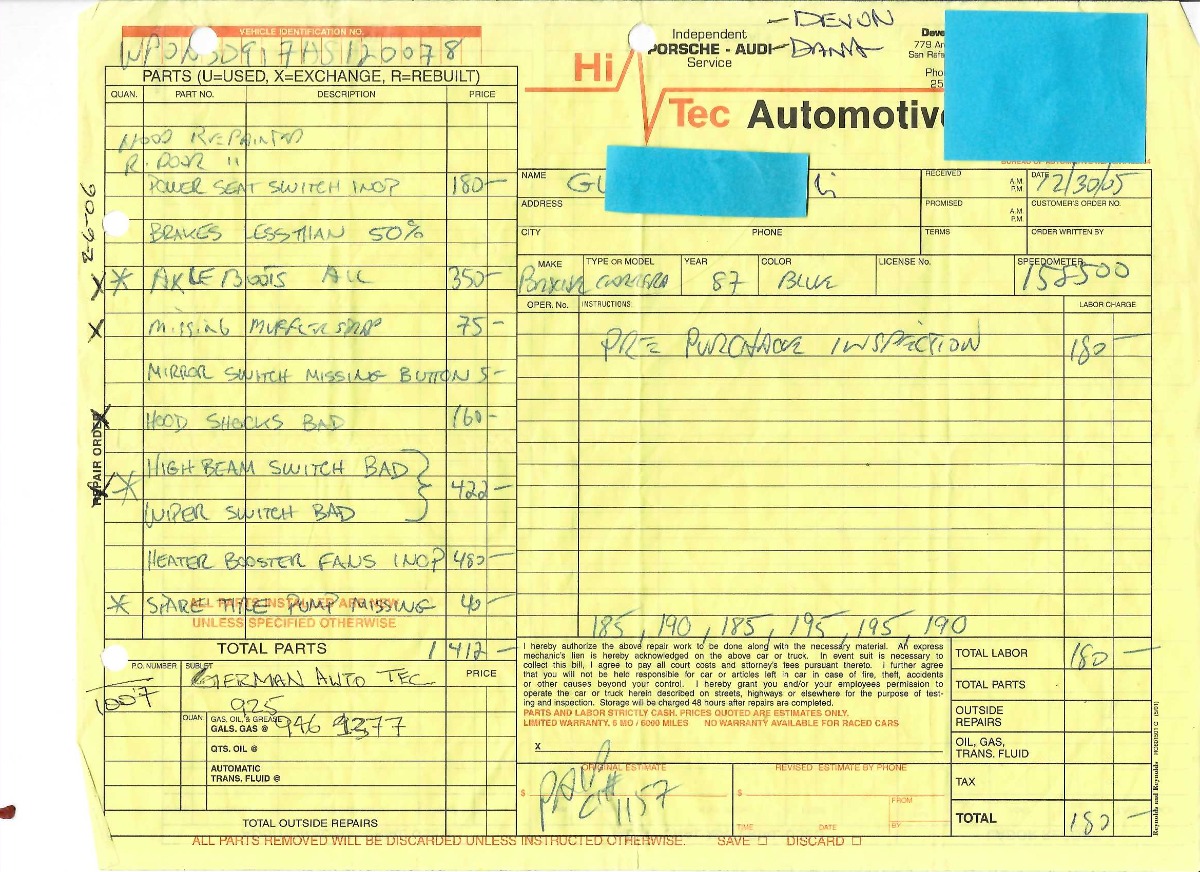 - DEVON
- DAMA
VEHICLE IDENTIFICATION NO.
Independent
PORSCHE - AUDI
Service
Hi
Tec Automotive
779
San
Pho
25
PARTS (U=USED, X=EXCHANGE, R=REBUILT)
QUAN. PART NO. DESCRIPTION PRICE
HOOD REPAINTED
R. DOOR "
POWER SEAT SWITCH INOP 180-
BRAKES LESS THAN 50%
X * AXLE BOOTS ALL 350-
X MISSING MUFFLER STRAP 75-
MIRROR SWITCH MISSING BUTTON 5-
X HOOD SHOCKS BAD 160-
X * HIGH BEAM SWITCH BAD
422-
WIPER SWITCH BAD
HEATER BOOSTER FANS INOP 480-
* SPARE TIRE PUMP MISSING 40-
ALL PARTS INSTALLED ARE NEW
UNLESS SPECIFIED OTHERWISE
TOTAL PARTS 1412-
2-6-06
REPAIR ORDER
P.O. NUMBER SUBLET PRICE
GERMAN AUTO TEC
925
QUAN. GAS, OIL, & GREASE
GALS. GAS @ 946 9377
QTS. OIL @
AUTOMATIC
TRANS. FLUID @
TOTAL OUTSIDE REPAIRS
NAME GU
RECEIVED A.M. P.M. DATE 12/30/05
ADDRESS
PROMISED A.M. P.M. CUSTOMER'S ORDER NO.
CITY PHONE TERMS ORDER WRITTEN BY
MAKE TYPE OR MODEL YEAR COLOR LICENSE No. SPEEDOMETER
CARRERA 87 BLUE 158500
OPER. No. INSTRUCTIONS: LABOR CHARGE
PRE PURCHASE INSPECTION 180-
185, 190, 185, 195, 195, 190
I hereby authorize the above repair work to be done along with the necessary material. An express
mechanic's lien is hereby acknowledged on the above car or truck. In event suit is necessary to
collect this bill, I agree to pay all court costs and attorney's fees pursuant thereto. I further agree
that you will not be held responsible for car or articles left in car in case of fire, theft, accidents
or other causes beyond your control. I hereby grant you and/or your employees permission to
operate the car or truck herein described on streets, highways or elsewhere for the purpose of test-
ing and inspection. Storage will be charged 48 hours after repairs are completed.
PARTS AND LABOR STRICTLY CASH. PRICES QUOTED ARE ESTIMATES ONLY.
LIMITED WARRANTY, 6 MO / 6000 MILES NO WARRANTY AVAILABLE FOR RACED CARS
X
ORIGINAL ESTIMATE
$
REVISED ESTIMATE BY PHONE
$
FROM
TIME DATE BY
PAID
CK# 1157
TOTAL LABOR 180-
TOTAL PARTS
OUTSIDE
REPAIRS
OIL, GAS,
TRANS. FLUID
TAX
TOTAL 180-
Reynolds and Reynolds
ALL PARTS REMOVED WILL BE DISCARDED UNLESS INSTRUCTED OTHERWISE. SAVE ☐ DISCARD ☐